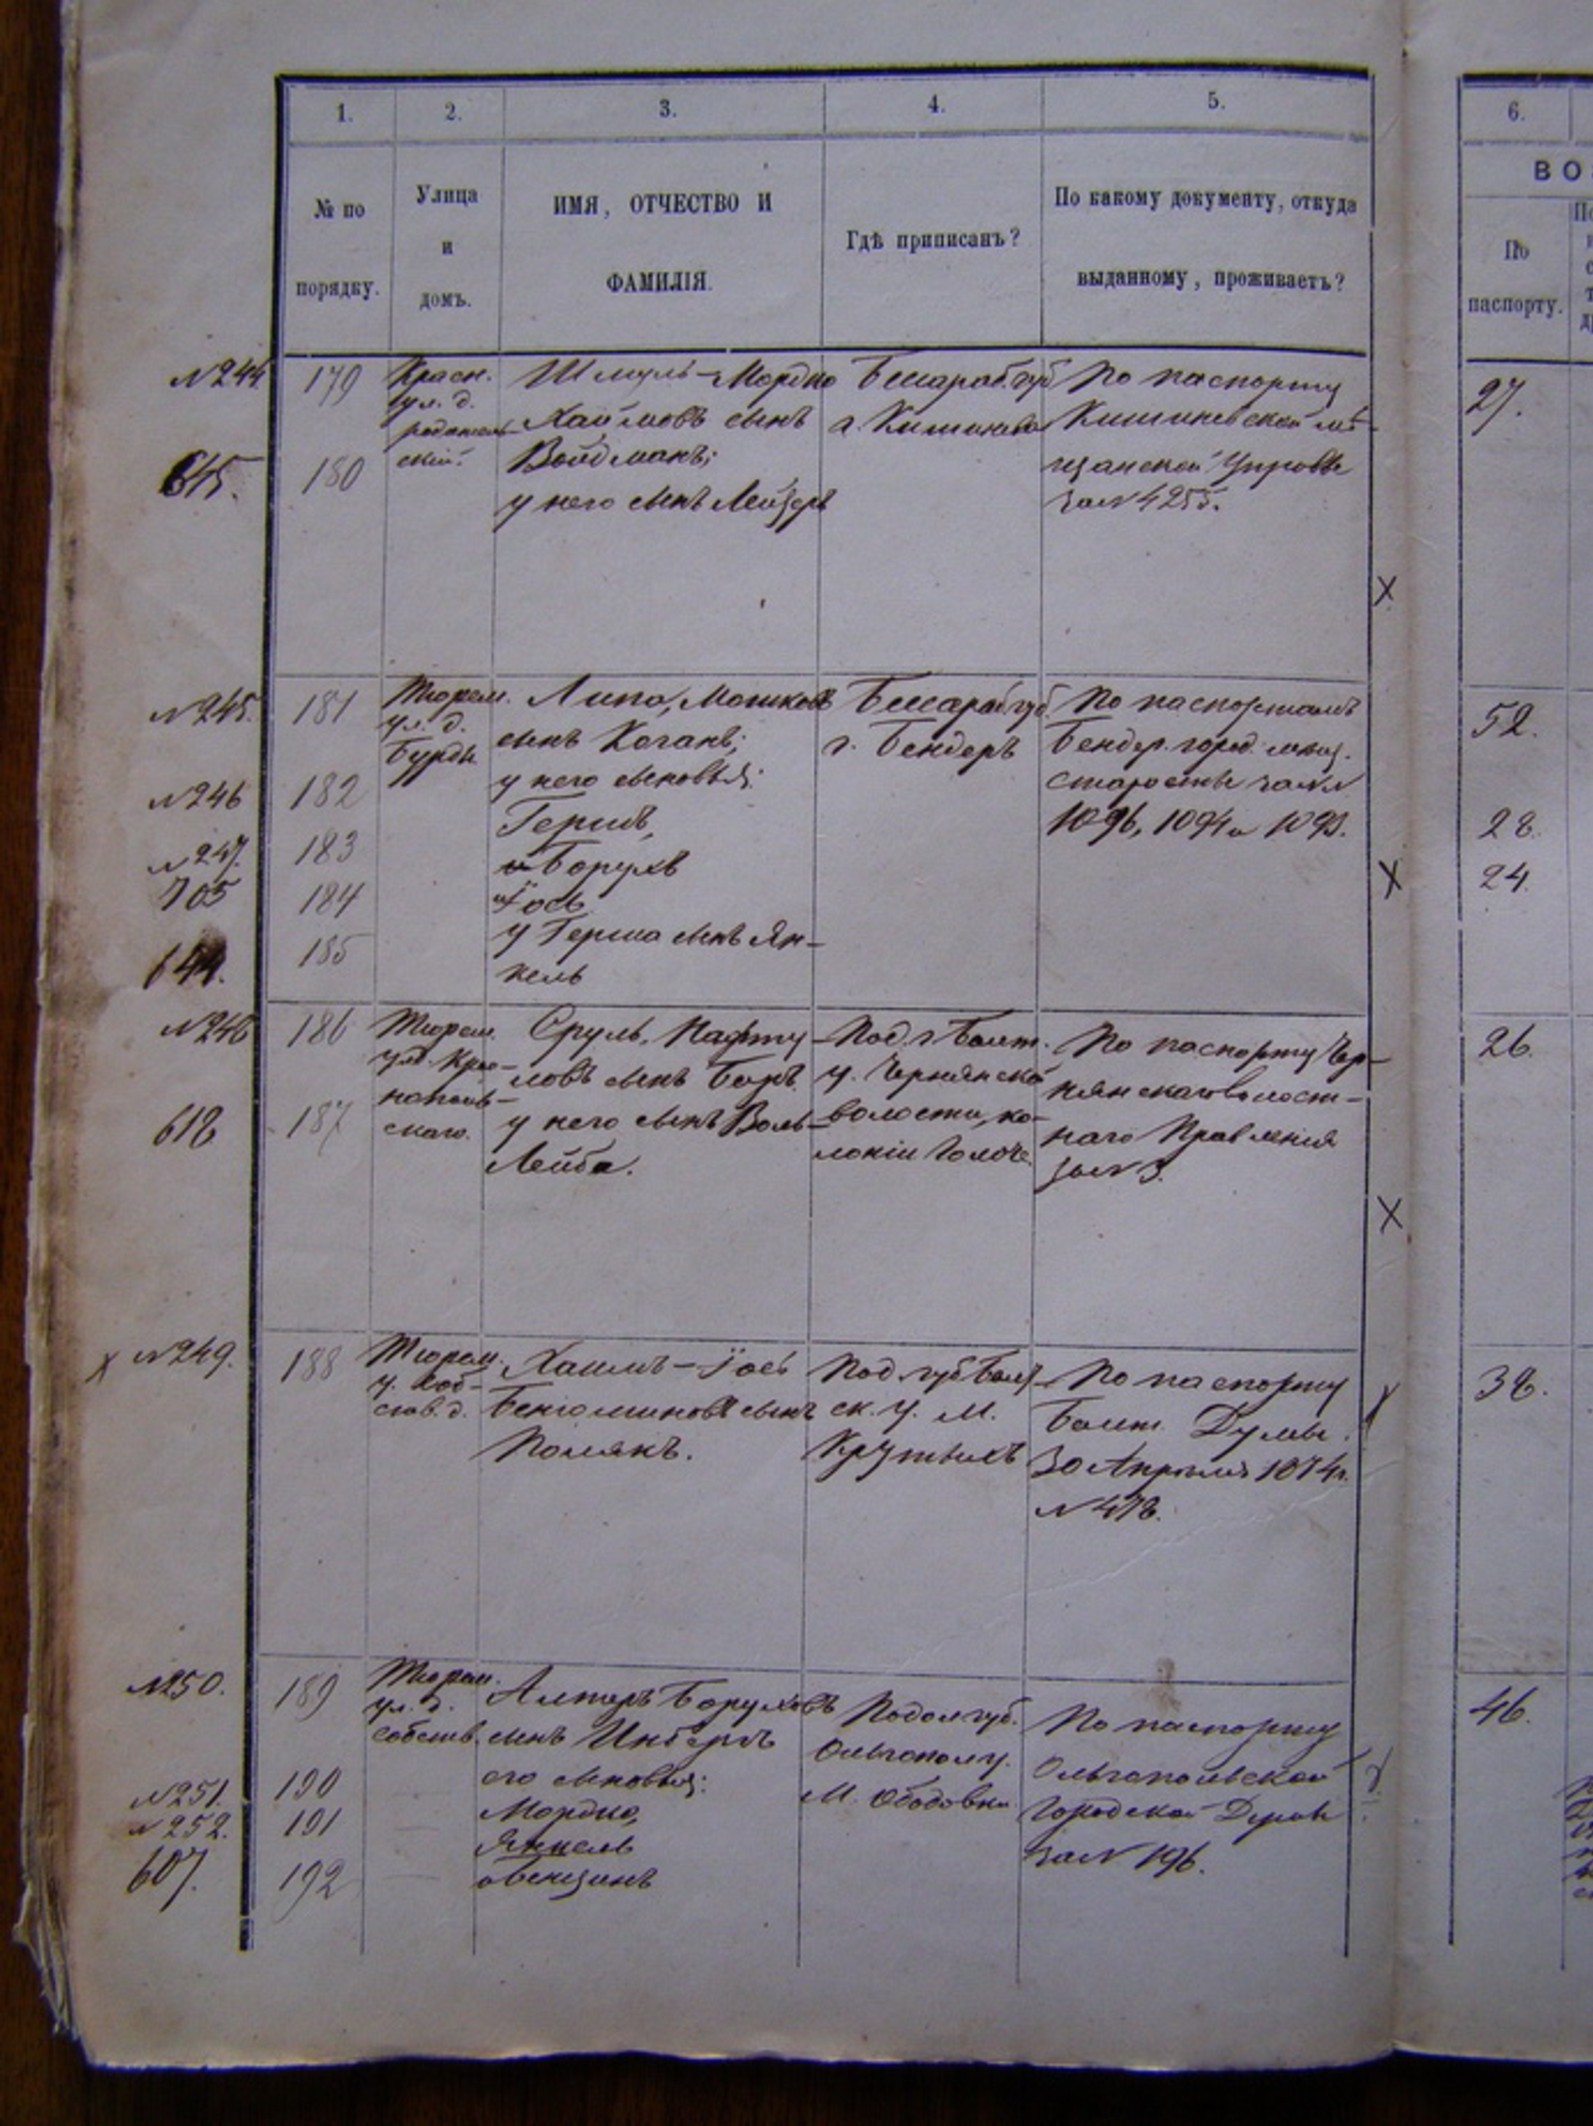 1. 2. 3. 4. 5. 6.
№ по порядку.
Улица и домъ.
ИМЯ, ОТЧЕСТВО И ФАМИЛІЯ.
Гдѣ приписанъ?
По какому документу, откуда выданному, проживаетъ?
ВО
По паспорту.
№244
615.
179
180
Красн.
ул. д.
Шмуль-Мордко
Хаймовъ сынъ
Войдманъ;
у него сынъ Лейзеръ
Бессараб. губ.
г. Кишинева
По паспорту
Кишиневской мѣ-
щанской Управы
за № 4255.
27.
X
№245.
№246
№247.
705
644.
181
182
183
184
185
Тюрем.
ул. д.
Бурды
Липа, Мошковъ
сынъ Коганъ;
у него сыновья:
Гершъ,
и Борухъ
и Іось
у Герша сынъ Ян-
кель
Бессараб. губ.
г. Бендеръ
По паспортамъ
Бендер. город. мѣщ.
старосты за №№
1096, 1094 и 1093.
52.
28.
24.
X
№248
618
186
187
Тюрем.
Сруль, Нафту-
ловъ сынъ Беръ.
у него сынъ Воль-
Лейба.
Под. г. Балт.
у. Чернянской
волости, ко-
лоніи
По паспорту Чер-
нянскаго Волост-
наго Правленія
за № 3.
26.
X
X №249.
188
Тюрем.
у. соб-
ств. д.
Хаимъ-Іось
Беніоминовъ сынъ
Полякъ.
Под. губ. Балт
ск. у. М.
Крутыхъ
По паспорту
Балт. Думы.
30 Апрѣля 1874 г.
№ 478.
38.
№250.
№251.
№252.
607.
189
190
191
192
Тюрем.
ул. д.
собств.
Алтеръ Боруховъ
сынъ Инберъ
его сыновья:
Мордко,
Янкель
и Бенционъ
Подол губ.
Ольгопол у.
М. Ободовки
По паспорту
Ольгопольской
Городской Думы
за № 196.
46.